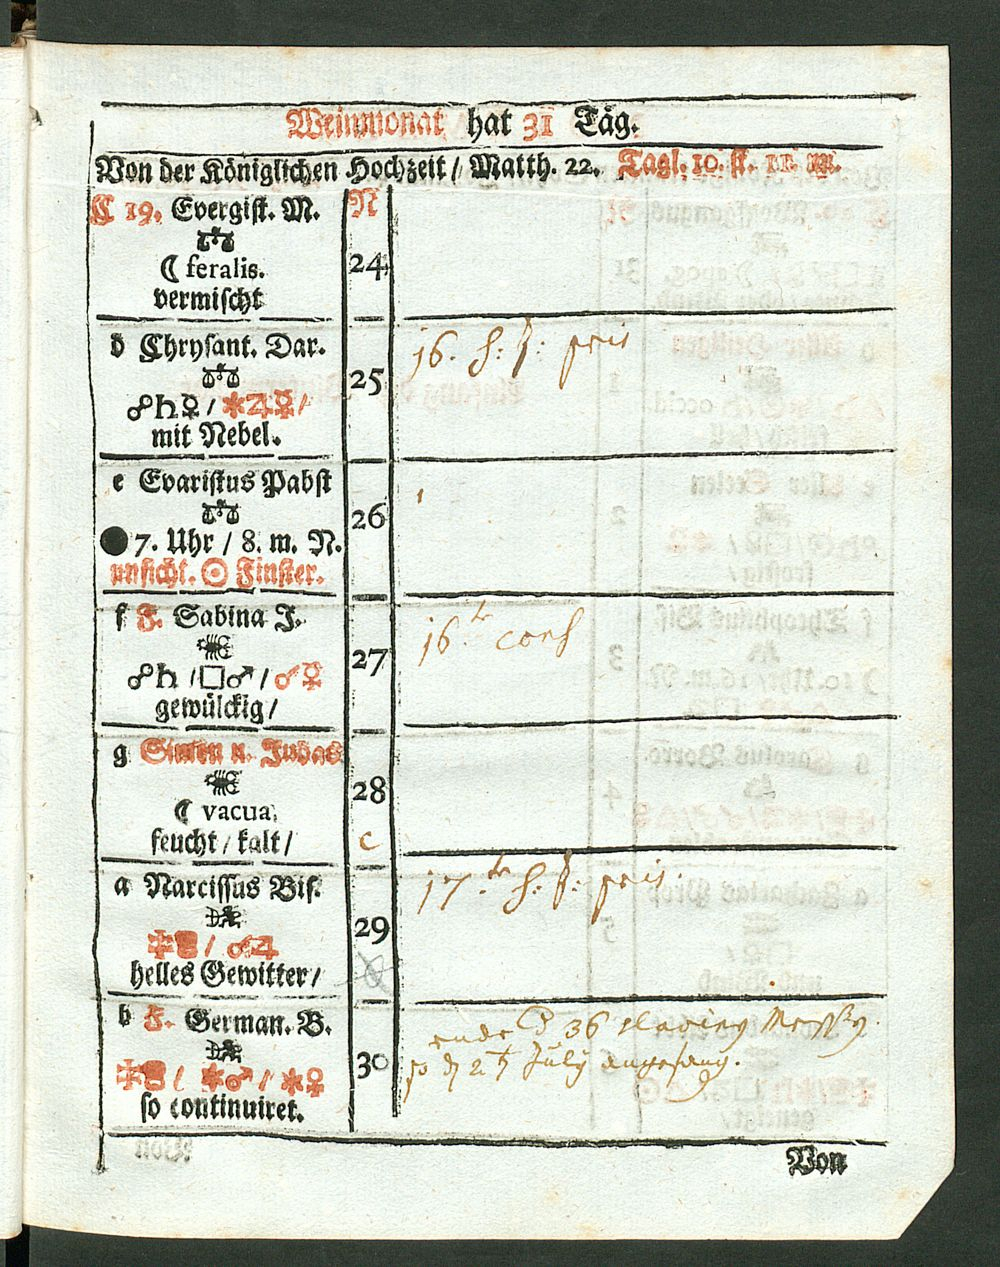 Weinmonat hat 31 Täg.
Von der Königlichen Hochzeit / Matth. 22. Tagl. 10. st. 11. m.
C 19. Evergist. M. N
☾ feralis. 24
vermischt
d Chrysant. Dar. 16. S: f: pris
25
☍♄☿ / ✱♃☿ /
mit Nebel.
e Evaristus Pabst
26
●7. Uhr / 8. m. N.
unsicht. ☉ Finster.
f F. Sabina J. 16. te conf
27
☍♄ / □♂ / ♂☿
gewülckig /
g Simon u. Judas
28
☾ vacua,
feucht / kalt / c
a Narcissus Bis. 17. te S: f: pris.
29
/ ♂♃
helles Gewitter /
b F. German. B. ende 36
30 so d 27 July angefang.
/ ✱♂ / ✱♀
so continuiret.
Von